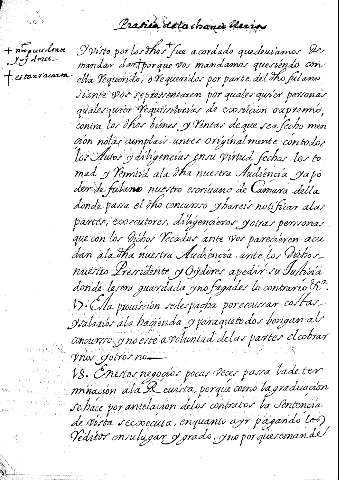 Practica de la chancilleria
E visto por los dhos fue acordado que deuiamos de
mandar dar por que vos mandamos que siendo con
ella requerido, o requeridos por parte del dho fulano
si ante vos se presentaren por quales quier personas
quales quier requisitorias de execucion o apremio,
contra los dhos bienes, y rentas de que se a fecho men
cion no las cumplais antes originalmente con todos
los Autos y diligencias en su virtud fechos los to
mad y remitid a la dha nuestra Audiencia y a po
der de fulano nuestro escriuano de Camara della
donde passa el dho concurso y hareis notificar a las
partes, executores, diligencieros, y otras personas
que con los dichos recados ante vos parecieren acu
dan a la dha nuestra Audiencia, ante los dichos
nuestro Presidente y Oydores a pedir su Justicia
donde les sera guardada y no fagades lo contrario &c.
17. Esta prouission se despacha por escusar costas,
y salarios a la hacienda y para que todos vengan al
concurso, y no este a voluntad de las partes el cobrar
vnos, y otros no
18. En estos negocios pocas veces passa la de ter
minacion a la Reuista, porque como la graduacion
se hace por antelacion de los contratos la Sentencia
de vista se executa, en quanto a yr pagando los
reditos en su lugar y grado, y no por que se mande